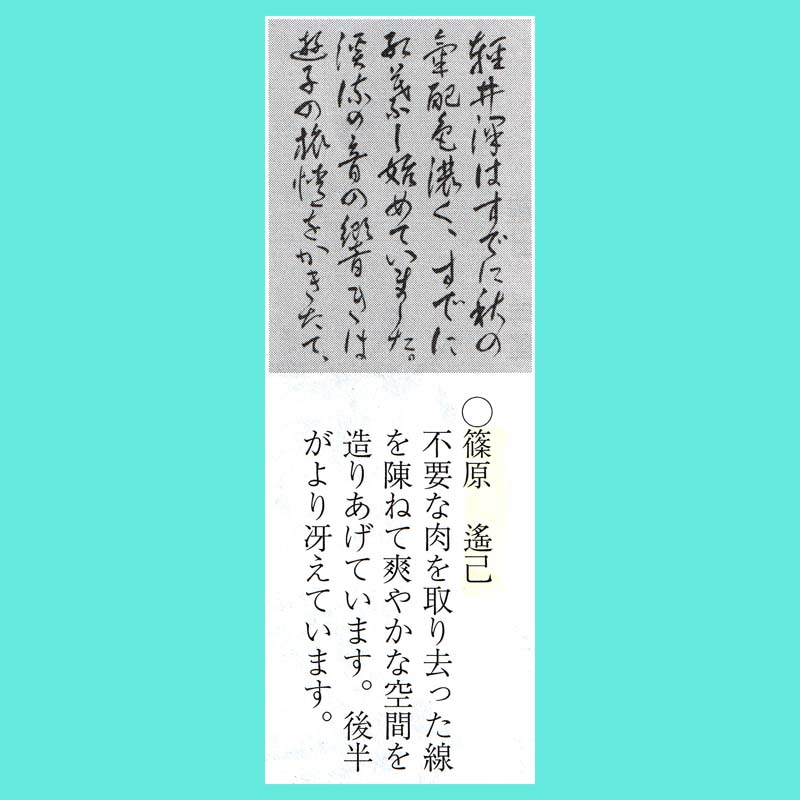 軽井澤はすでに秋の
氣配色濃く、すでに
し始めていました。
渓流の音の響きは
遊子の旅情を、かきたて、
○篠原 遙己
不要な肉を取り去った線
を陳ねて爽やかな空間を
造りあげています。後半
がより冴えています。